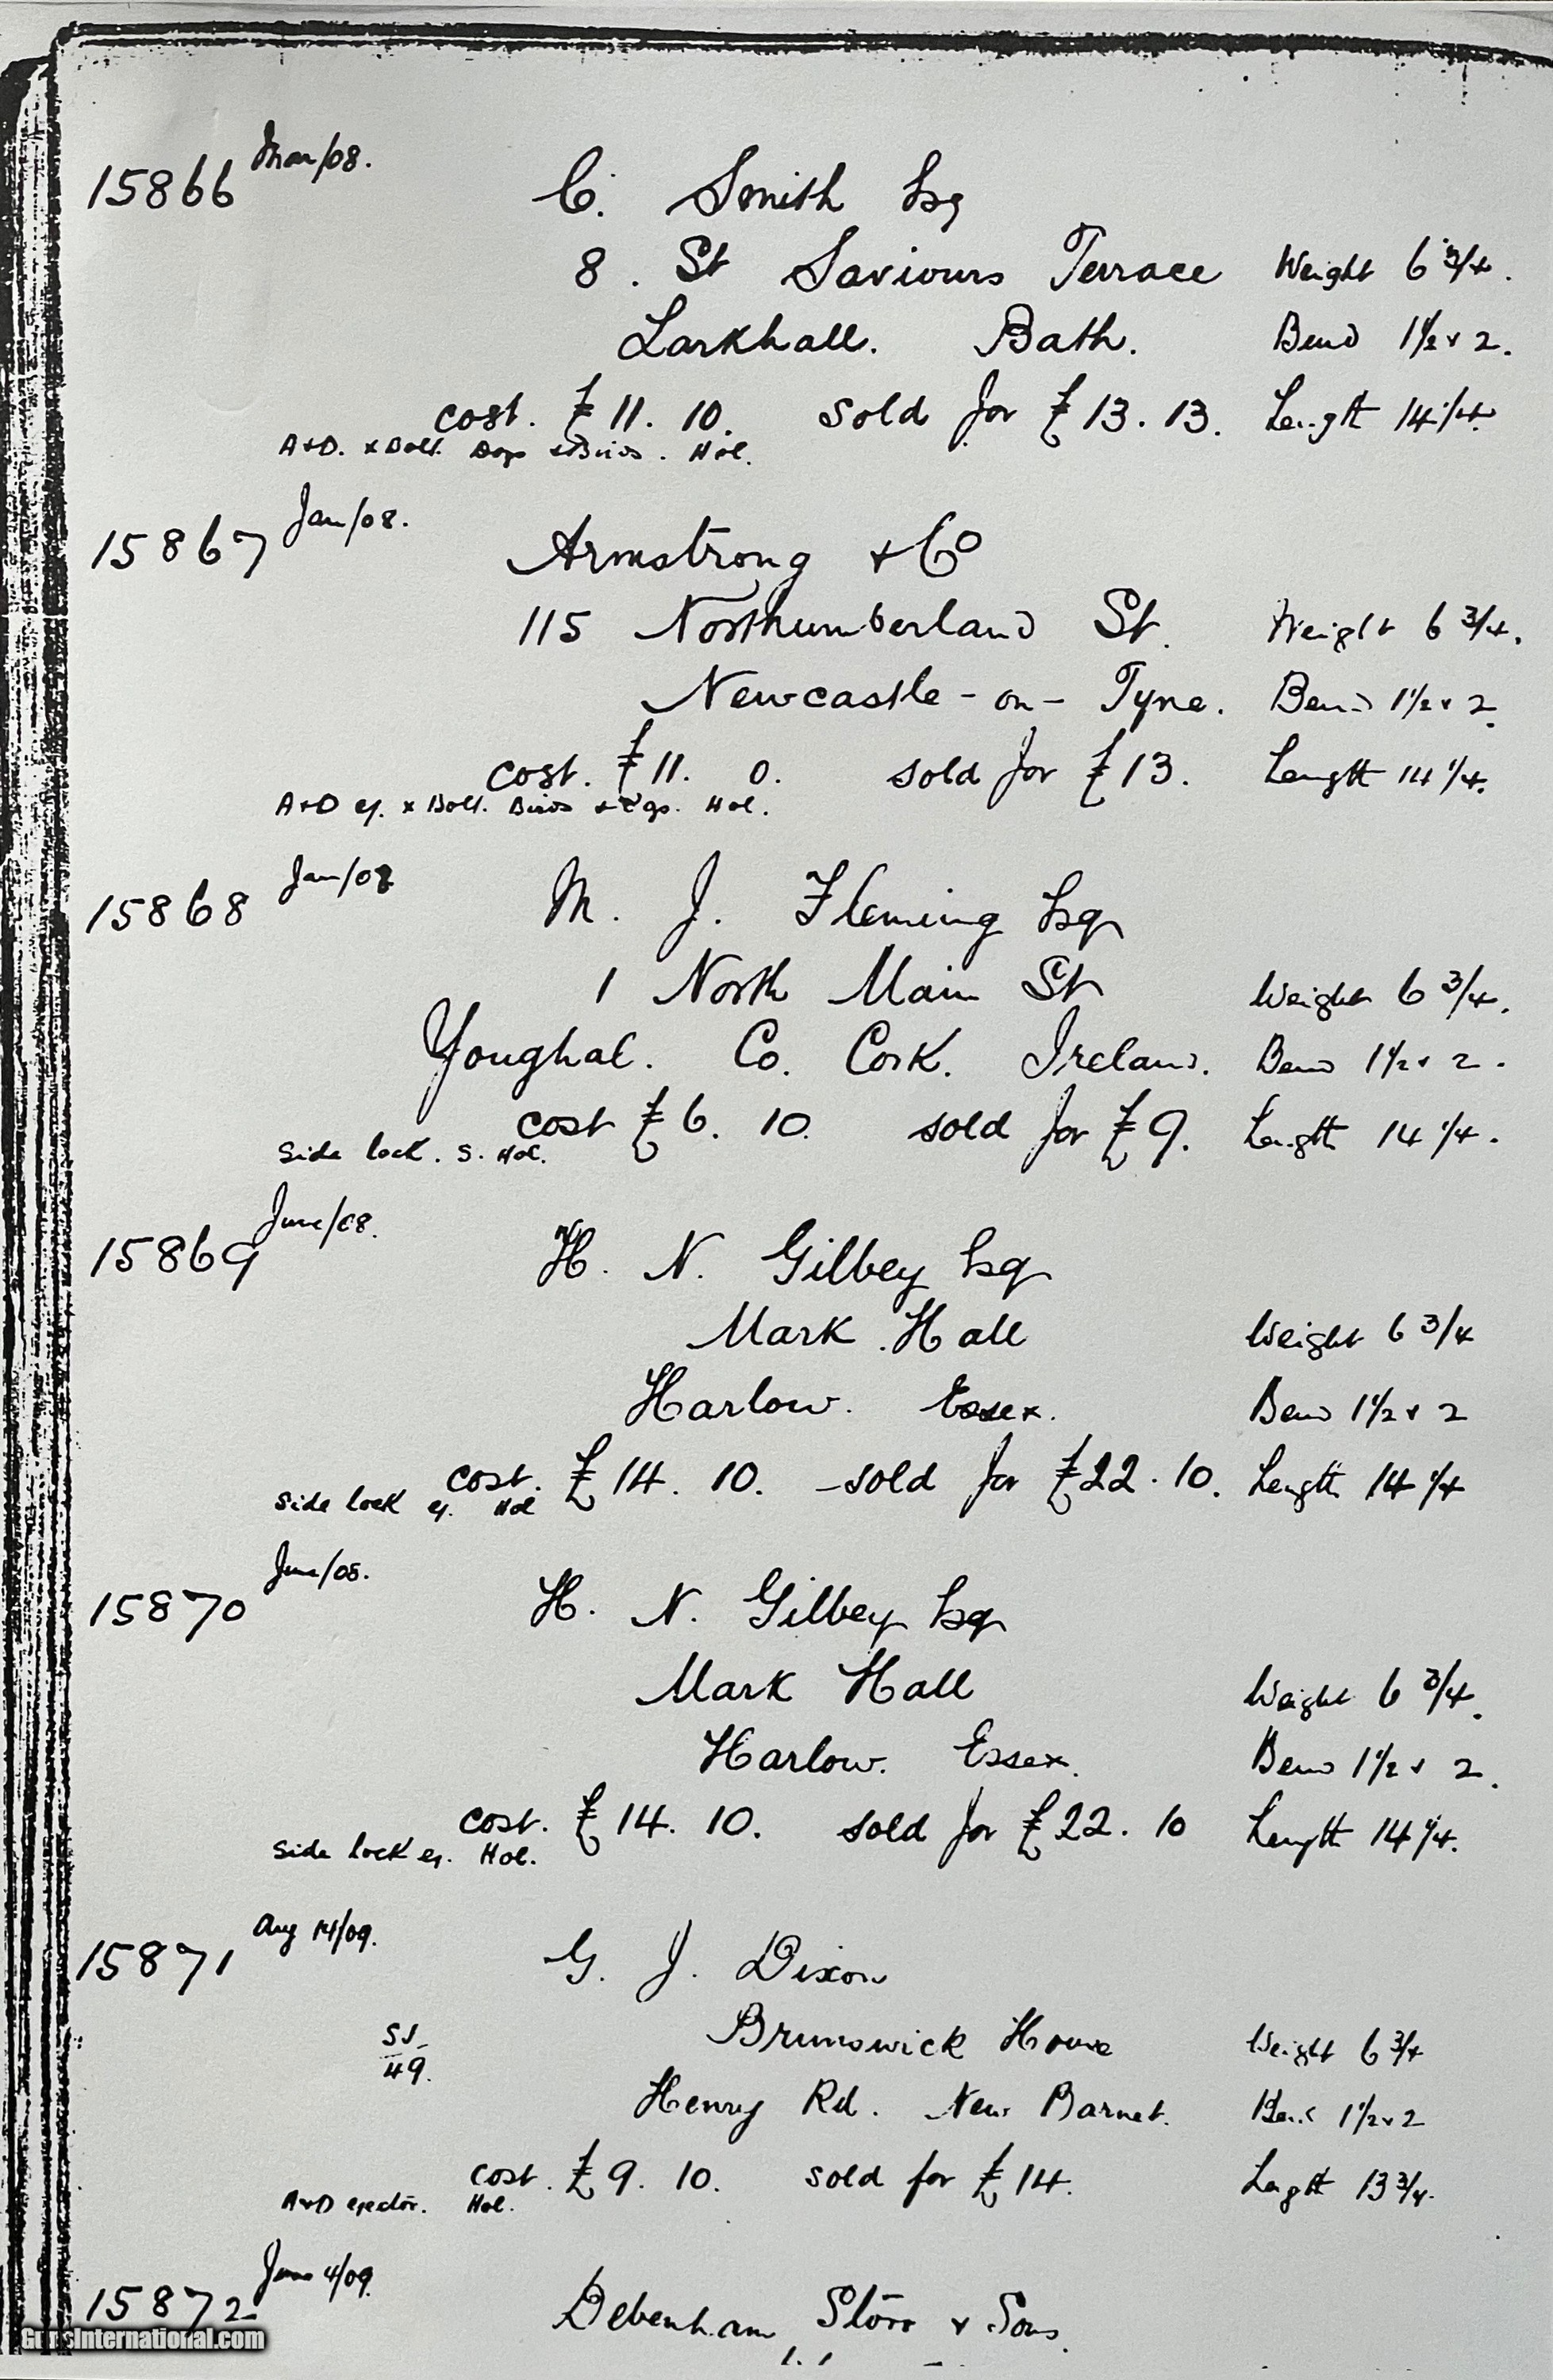 15866 Mar/08.
C. Smith Esq
8. St Saviours Terrace Weight 6 3/4.
Larkhall. Bath. Bend 1 1/2 x 2.
cost. £11. 10. sold for £13. 13. Length 14 1/4.
A+D. x Bolt. Dogs + Birds. Hol.
15867 Jan/08.
Armstrong + Co
115 Northumberland St. Weight 6 3/4.
Newcastle-on-Tyne. Bend 1 1/2 x 2.
cost. £11. 0. sold for £13. Length 14 1/4.
A+D ej. x Bolt. Birds + Dgs. Hol.
15868 Jan/08
M. J. Fleming Esq
1 North Main St Weight 6 3/4.
Youghal. Co. Cork. Ireland. Bend 1 1/2 x 2.
cost £6. 10. sold for £9. Length 14 1/4.
Side lock. S. Hol.
15869 June/08.
H. N. Gilbey Esq
Mark Hall Weight 6 3/4
Harlow. Essex. Bend 1 1/2 x 2
cost. £14. 10. sold for £22. 10. Length 14 1/4
Side lock ej. Hol
15870 June/08.
H. N. Gilbey Esq
Mark Hall Weight 6 3/4.
Harlow. Essex. Bend 1 1/2 x 2.
cost. £14. 10. sold for £22. 10 Length 14 1/4.
Side lock ej. Hol.
15871 Aug 14/09.
G. J. Dixon
SJ
49.
Brunswick House Weight 6 3/4
Henry Rd. New Barnet. Bend 1 1/2 x 2
cost. £9. 10. sold for £14. Length 13 3/4.
A+D ejector. Hol.
15872 June 4/09.
Debenham Storr + Sons.
GunsInternational.com